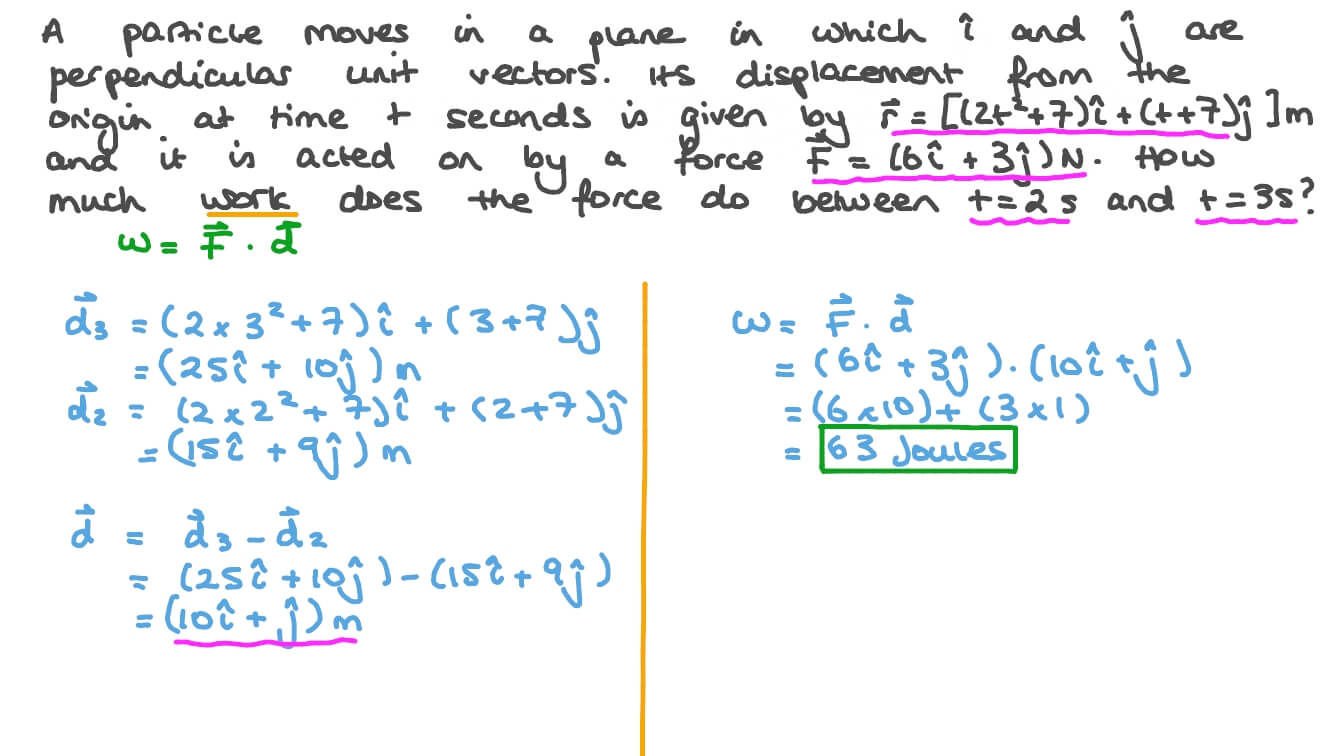 A particle moves in a plane in which î and ĵ are
perpendicular unit vectors. Its displacement from the
origin at time t seconds is given by r⃗ = [(2t²+7)î + (t+7)ĵ]m
and it is acted on by a force F⃗ = (6î + 3ĵ)N. How
much work does the force do between t=2s and t=3s?
W = F⃗ . d⃗
d⃗₃ = (2×3²+7)î + (3+7)ĵ
= (25î + 10ĵ)m
d⃗₂ = (2×2²+7)î + (2+7)ĵ
= (15î + 9ĵ)m
d⃗ = d⃗₃ - d⃗₂
= (25î + 10ĵ) - (15î + 9ĵ)
= (10î + ĵ)m
W = F⃗ . d⃗
= (6î + 3ĵ).(10î + ĵ)
= (6×10) + (3×1)
= 63 Joules